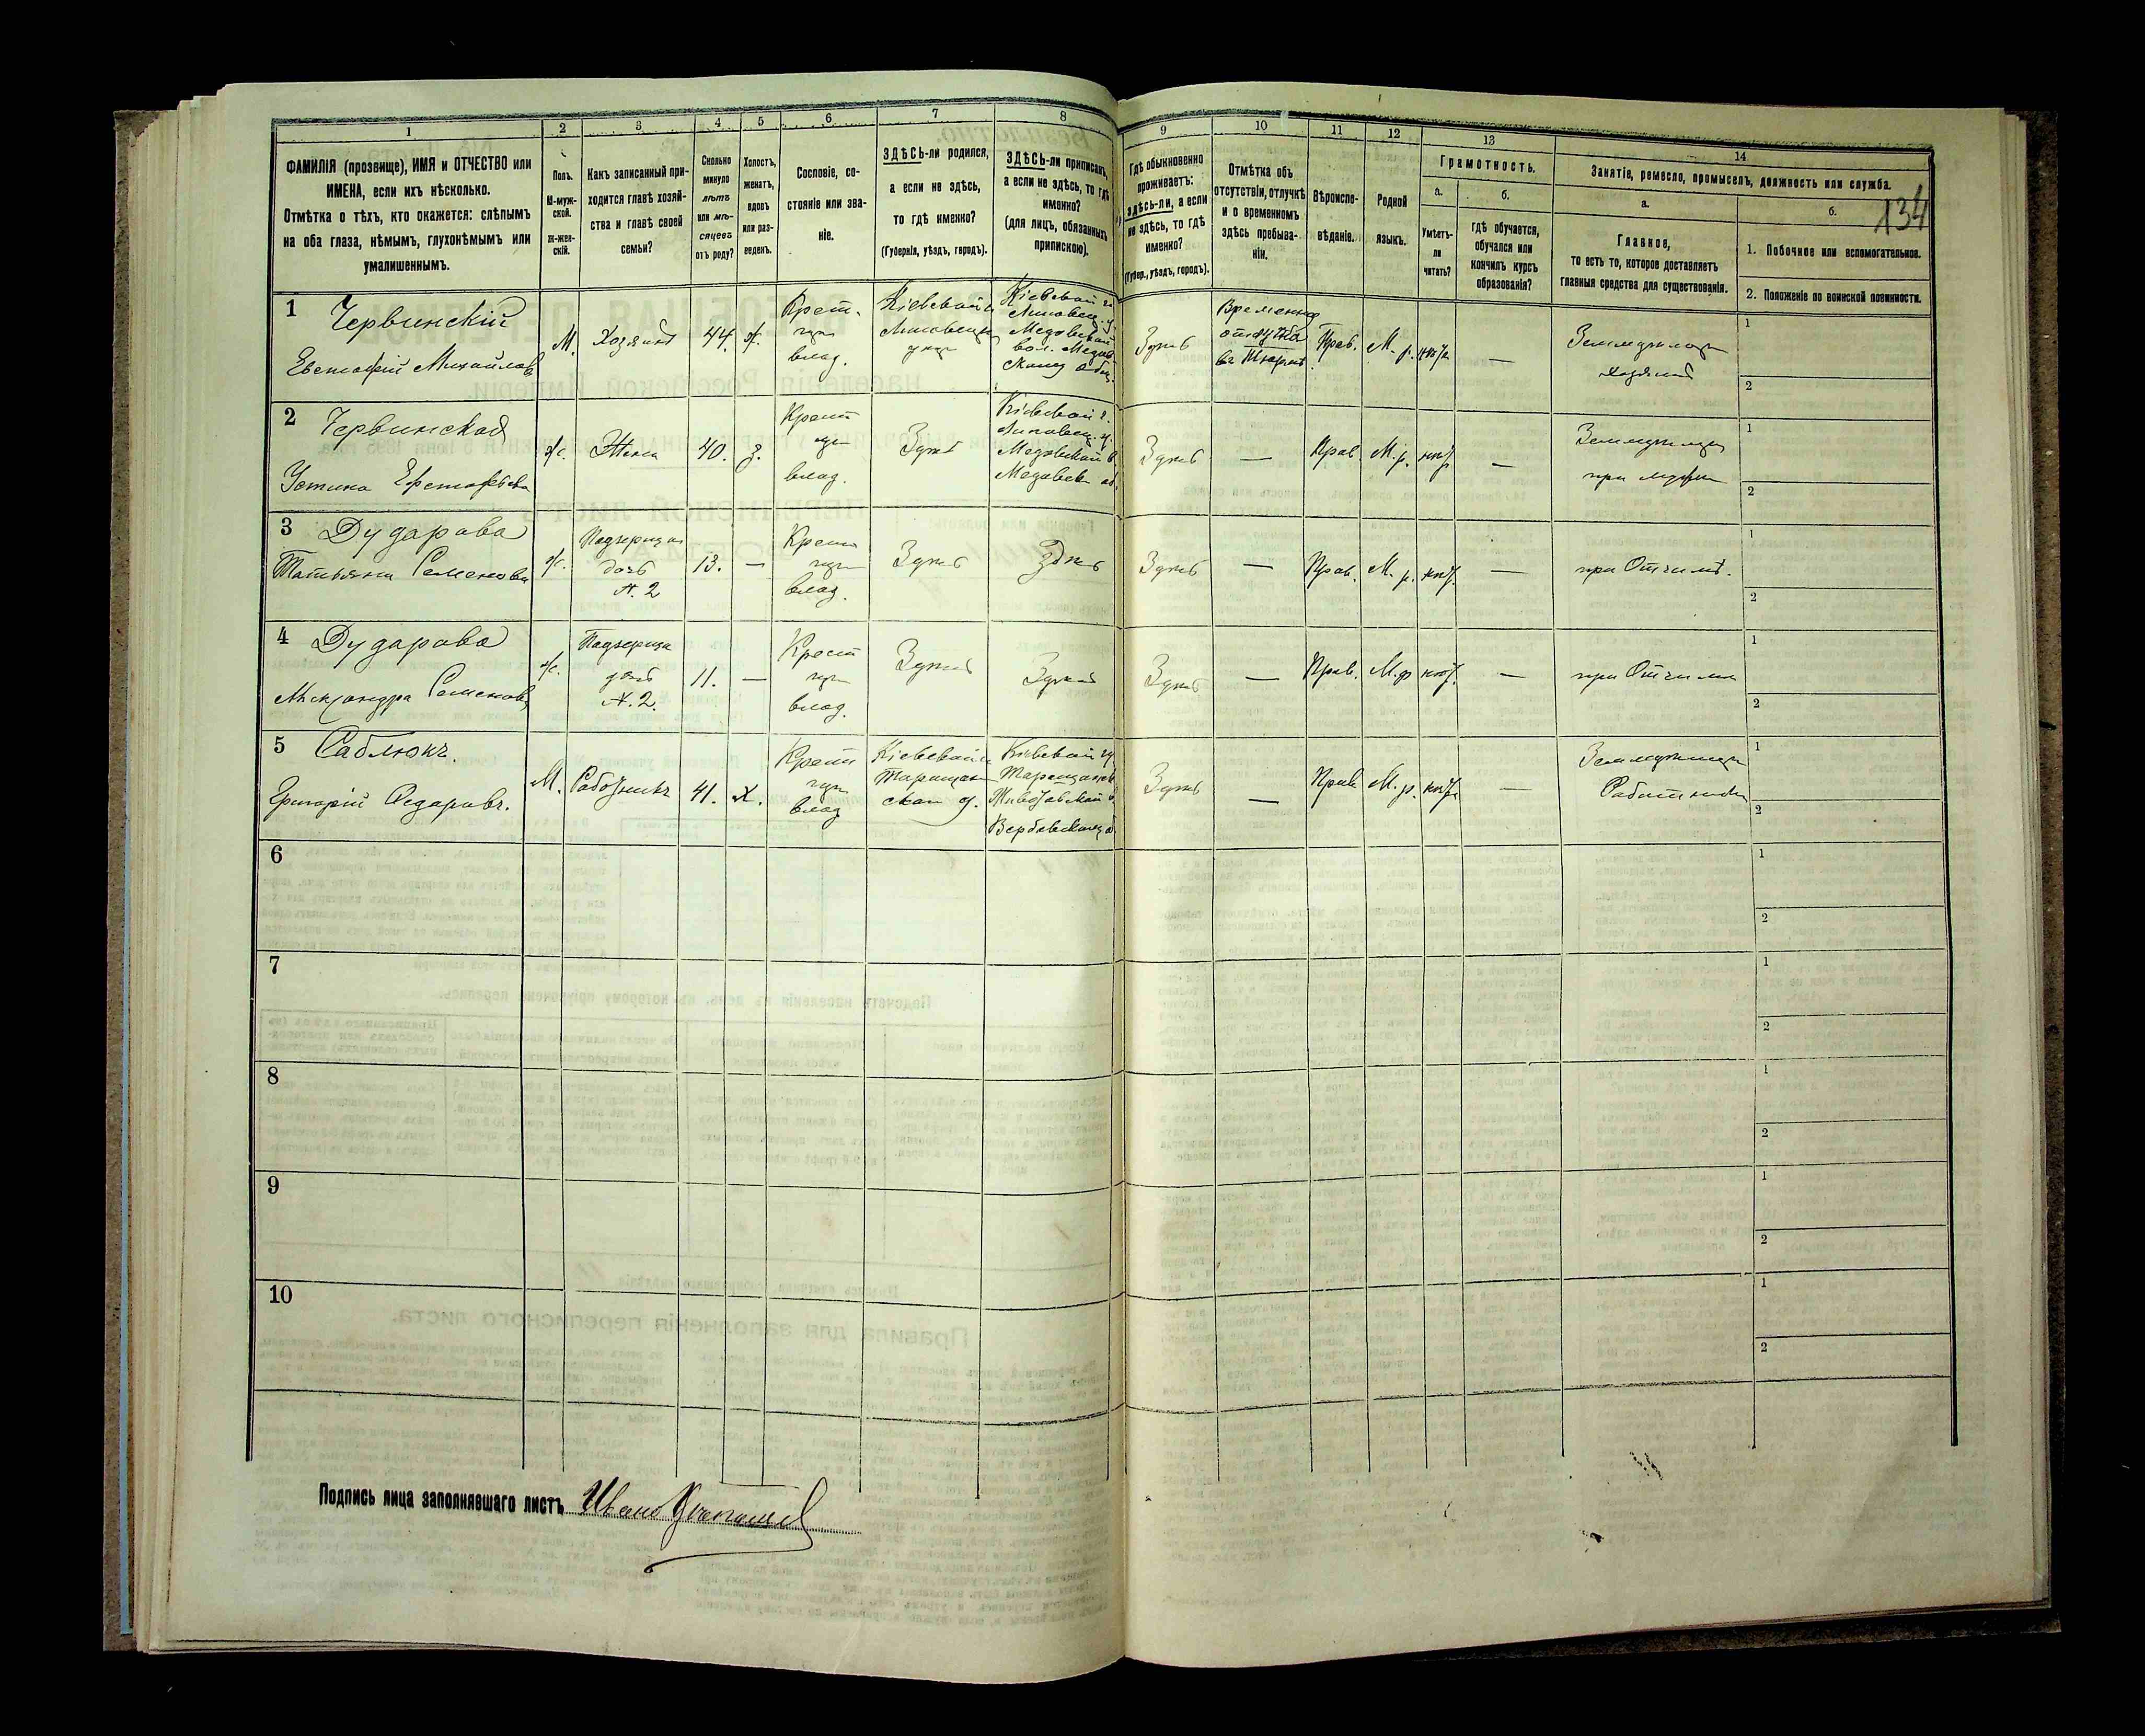 1 2 3 4 5 6 7 8 9 10 11 12 13 14
ФАМИЛІЯ (прозвище), ИМЯ и ОТЧЕСТВО или
ИМЕНА, если ихъ нѣсколько.
Отмѣтка о тѣхъ, кто окажется: слѣпымъ
на оба глаза, нѣмымъ, глухонѣмымъ или
умалишеннымъ.
Полъ.
М-муж-
ской.
Ж-жен-
скій.
Какъ записанный при-
ходится главѣ хозяй-
ства и главѣ своей
семьи?
Сколько
минуло
лѣтъ
или мѣ-
сяцевъ
отъ роду?
Холостъ,
женатъ,
вдовъ
или раз-
веденъ.
Сословіе, со-
стояніе или зва-
ніе.
ЗДѢСЬ-ли родился,
а если не здѣсь,
то гдѣ именно?
(Губернія, уѣздъ, городъ).
ЗДѢСЬ-ли приписанъ,
а если не здѣсь, то гдѣ
именно?
(для лицъ, обязанныхъ
припискою).
Гдѣ обыкновенно
проживаетъ:
здѣсь-ли, а если
не здѣсь, то гдѣ
именно?
(Губер., уѣздъ, городъ).
Отмѣтка объ
отсутствіи, отлучкѣ
и о временномъ
здѣсь пребыва-
ніи.
Вѣроиспо-
вѣданіе.
Родной
языкъ.
Грамотность.
а.
Умѣетъ-
ли
читать?
б.
гдѣ обучается,
обучался или
кончилъ курсъ
образованія?
Занятіе, ремесло, промыселъ, должность или служба.
а.
Главное,
то есть то, которое доставляетъ
главныя средства для существованія.
б.
134
1. Побочное или вспомогательное.
2. Положеніе по воинской повинности.
1 Червинскій
Евстафій Михайловъ
М. Хозяинъ 44. ж.
Крест.
влад.
Кіевской
Кіевской
Здѣсь
Временно
Прав. М. р.
хозяинъ
1
2
2 Червинская
Устина
ж. Жена 40. з.
Крест
влад.
Здѣсь
Кіевской г.
Липовец. у.
Медовской
Здѣсь — Прав. М. р. —
при мужи
1
2
3 Дударова
Татьяна Семенова
ж.
Падчерица
дочь
№. 2
13. —
Крест
влад.
Здѣсь Здѣсь Здѣсь — Прав. М. р. — при Отчимѣ.
1
2
4 Дударова
Александра Семенова
ж.
Падчерица
дочь
№. 2.
11. —
Крест
влад.
Здѣсь Здѣсь Здѣсь — Прав. М. р. — при Отчими
1
2
5 Саблюкъ.
Григорій Федоровъ.
М. Работникъ 41. Х.
Крест
влад
Кіевской
Таращан
ской у.
Кіевской
Здѣсь — Прав М. р. —
Работникъ
1
2
6
1
2
7
1
2
8
1
2
9
1
2
10
1
2
Подпись лица заполнявшаго листъ Иванъ